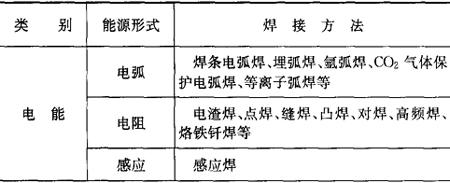 类 别 能源形式 焊 接 方 法
电 能
电弧
焊条电弧焊、埋弧焊、氩弧焊、CO₂ 气体保
护电弧焊、等离子弧焊等
电阻
电渣焊、点焊、缝焊、凸焊、对焊、高频焊、
烙铁钎焊等
感应 感应焊